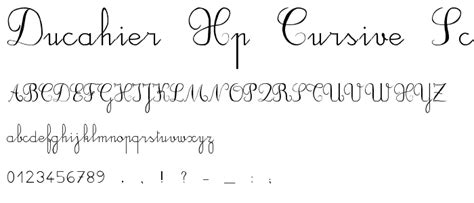 Ducahier Hp Cursive Sc
ABCDEFGHIJKLMNOPQRSTUVWXYZ
abcdefghijklmnopqrstuvwxyz
0123456789 . , ! ? - _ : ;